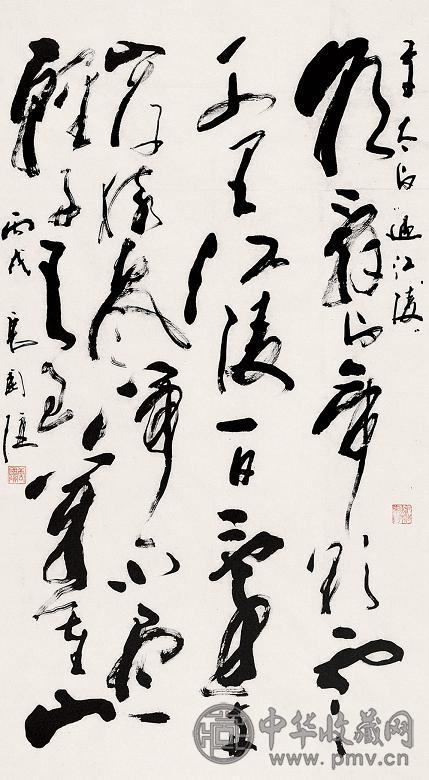 李太白過江陵
朝辭白帝彩雲間
千里江陵一日還兩
岸猿聲啼不盡
輕舟已過萬重山
丙戌
中华收藏网
www.pmv.cn